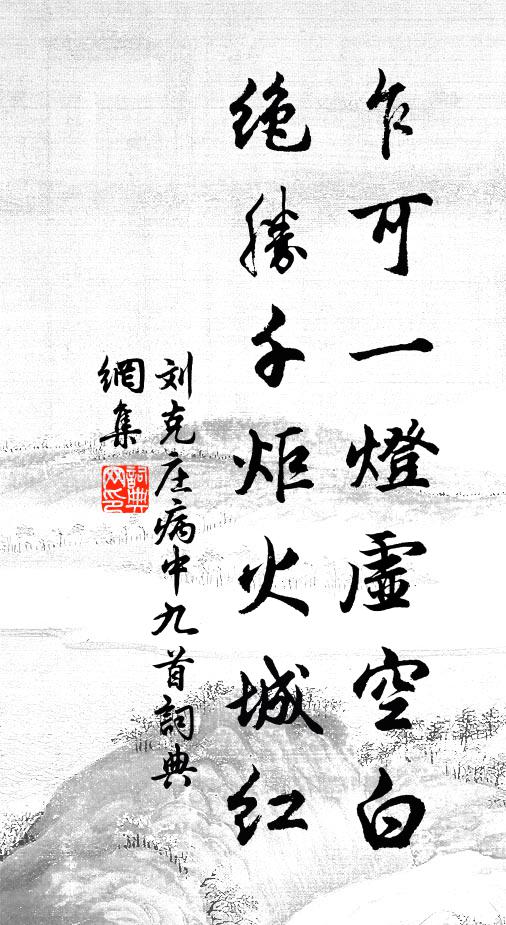 乍可一燈虛空白
絶勝千炬火城红
刘克庄病中九首詞典
網集
詞典
网印